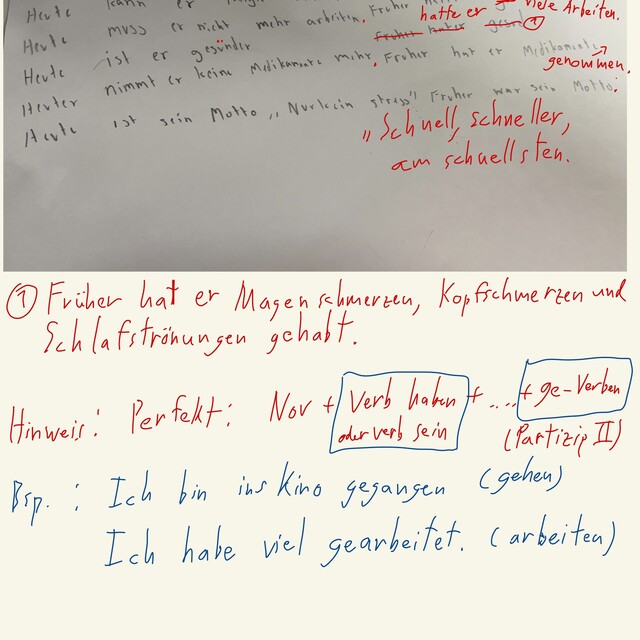 Heute kann er
hatte er viele Arbeiten.
Heute muss er nicht mehr arbeiten. Früher
Heute ist er gesünder
genommen.
Heuter nimmt er keine Medikamente mehr. Früher hat er Medikamente
Heute ist sein Motto „Nur kein stress" Früher war sein Motto:
„Schnell, schneller,
am schnellsten.
① Früher hat er Magenschmerzen, Kopfschmerzen und
Schlafströnungen gehabt.
Hinweis: Perfekt: Nov + Verb haben + .... + ge-Verben
oder verb sein (Partizip II)
Bsp.: Ich bin ins Kino gegangen (gehen)
Ich habe viel gearbeitet. (arbeiten)